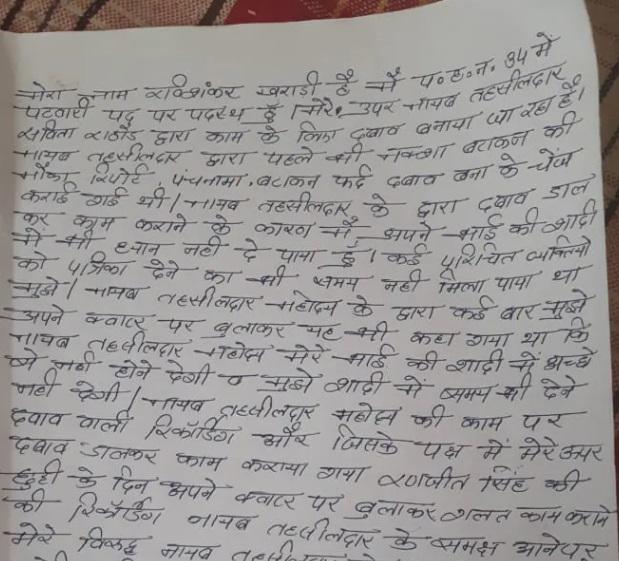 मेरा नाम रविशंकर खराडी है मैं प०ह०न० 34 में
पटवारी पद पर पदस्थ हूँ। मेरे उपर नायब तहसीलदार
सविता राठौड द्वारा काम के लिए दबाव बनाया जा रहा है।
नायब तहसीलदार द्वारा पहले भी नक्शा बटाकन की
मौका रिपोर्ट, पंचनामा, बटाकन फर्द दबाव बना के चेंज
कराई गई थी। नायब तहसीलदार के द्वारा दबाव डाल
कर काम कराने के कारण मैं अपने भाई की शादी
में भी ध्यान नही दे पाया हूँ। कई परिचित व्यक्तियो
को पत्रिका देने का भी समय नही मिला पाया था
मुझे। नायब तहसीलदार महोदय के द्वारा कई बार मुझे
अपने क्वाटर पर बुलाकर यह भी कहा गया था कि
नायब तहसीलदार महोदय मेरे भाई की शादी में अच्छे
से नही होने देगी व मुझे शादी में समय भी देने
नही देगी। नायब तहसीलदार महोदय की काम पर
दबाव वाली रिकॉर्डिंग और जिसके पक्ष में मेरे उपर
दबाव डालकर काम कराया गया रणजीत सिंह की
छुट्टी के दिन अपने क्वाटर पर बुलाकर गलत काम कराने
की रिकॉर्डिंग नायब तहसीलदार के समक्ष आनेपर
मेरे विरुद्ध नायब